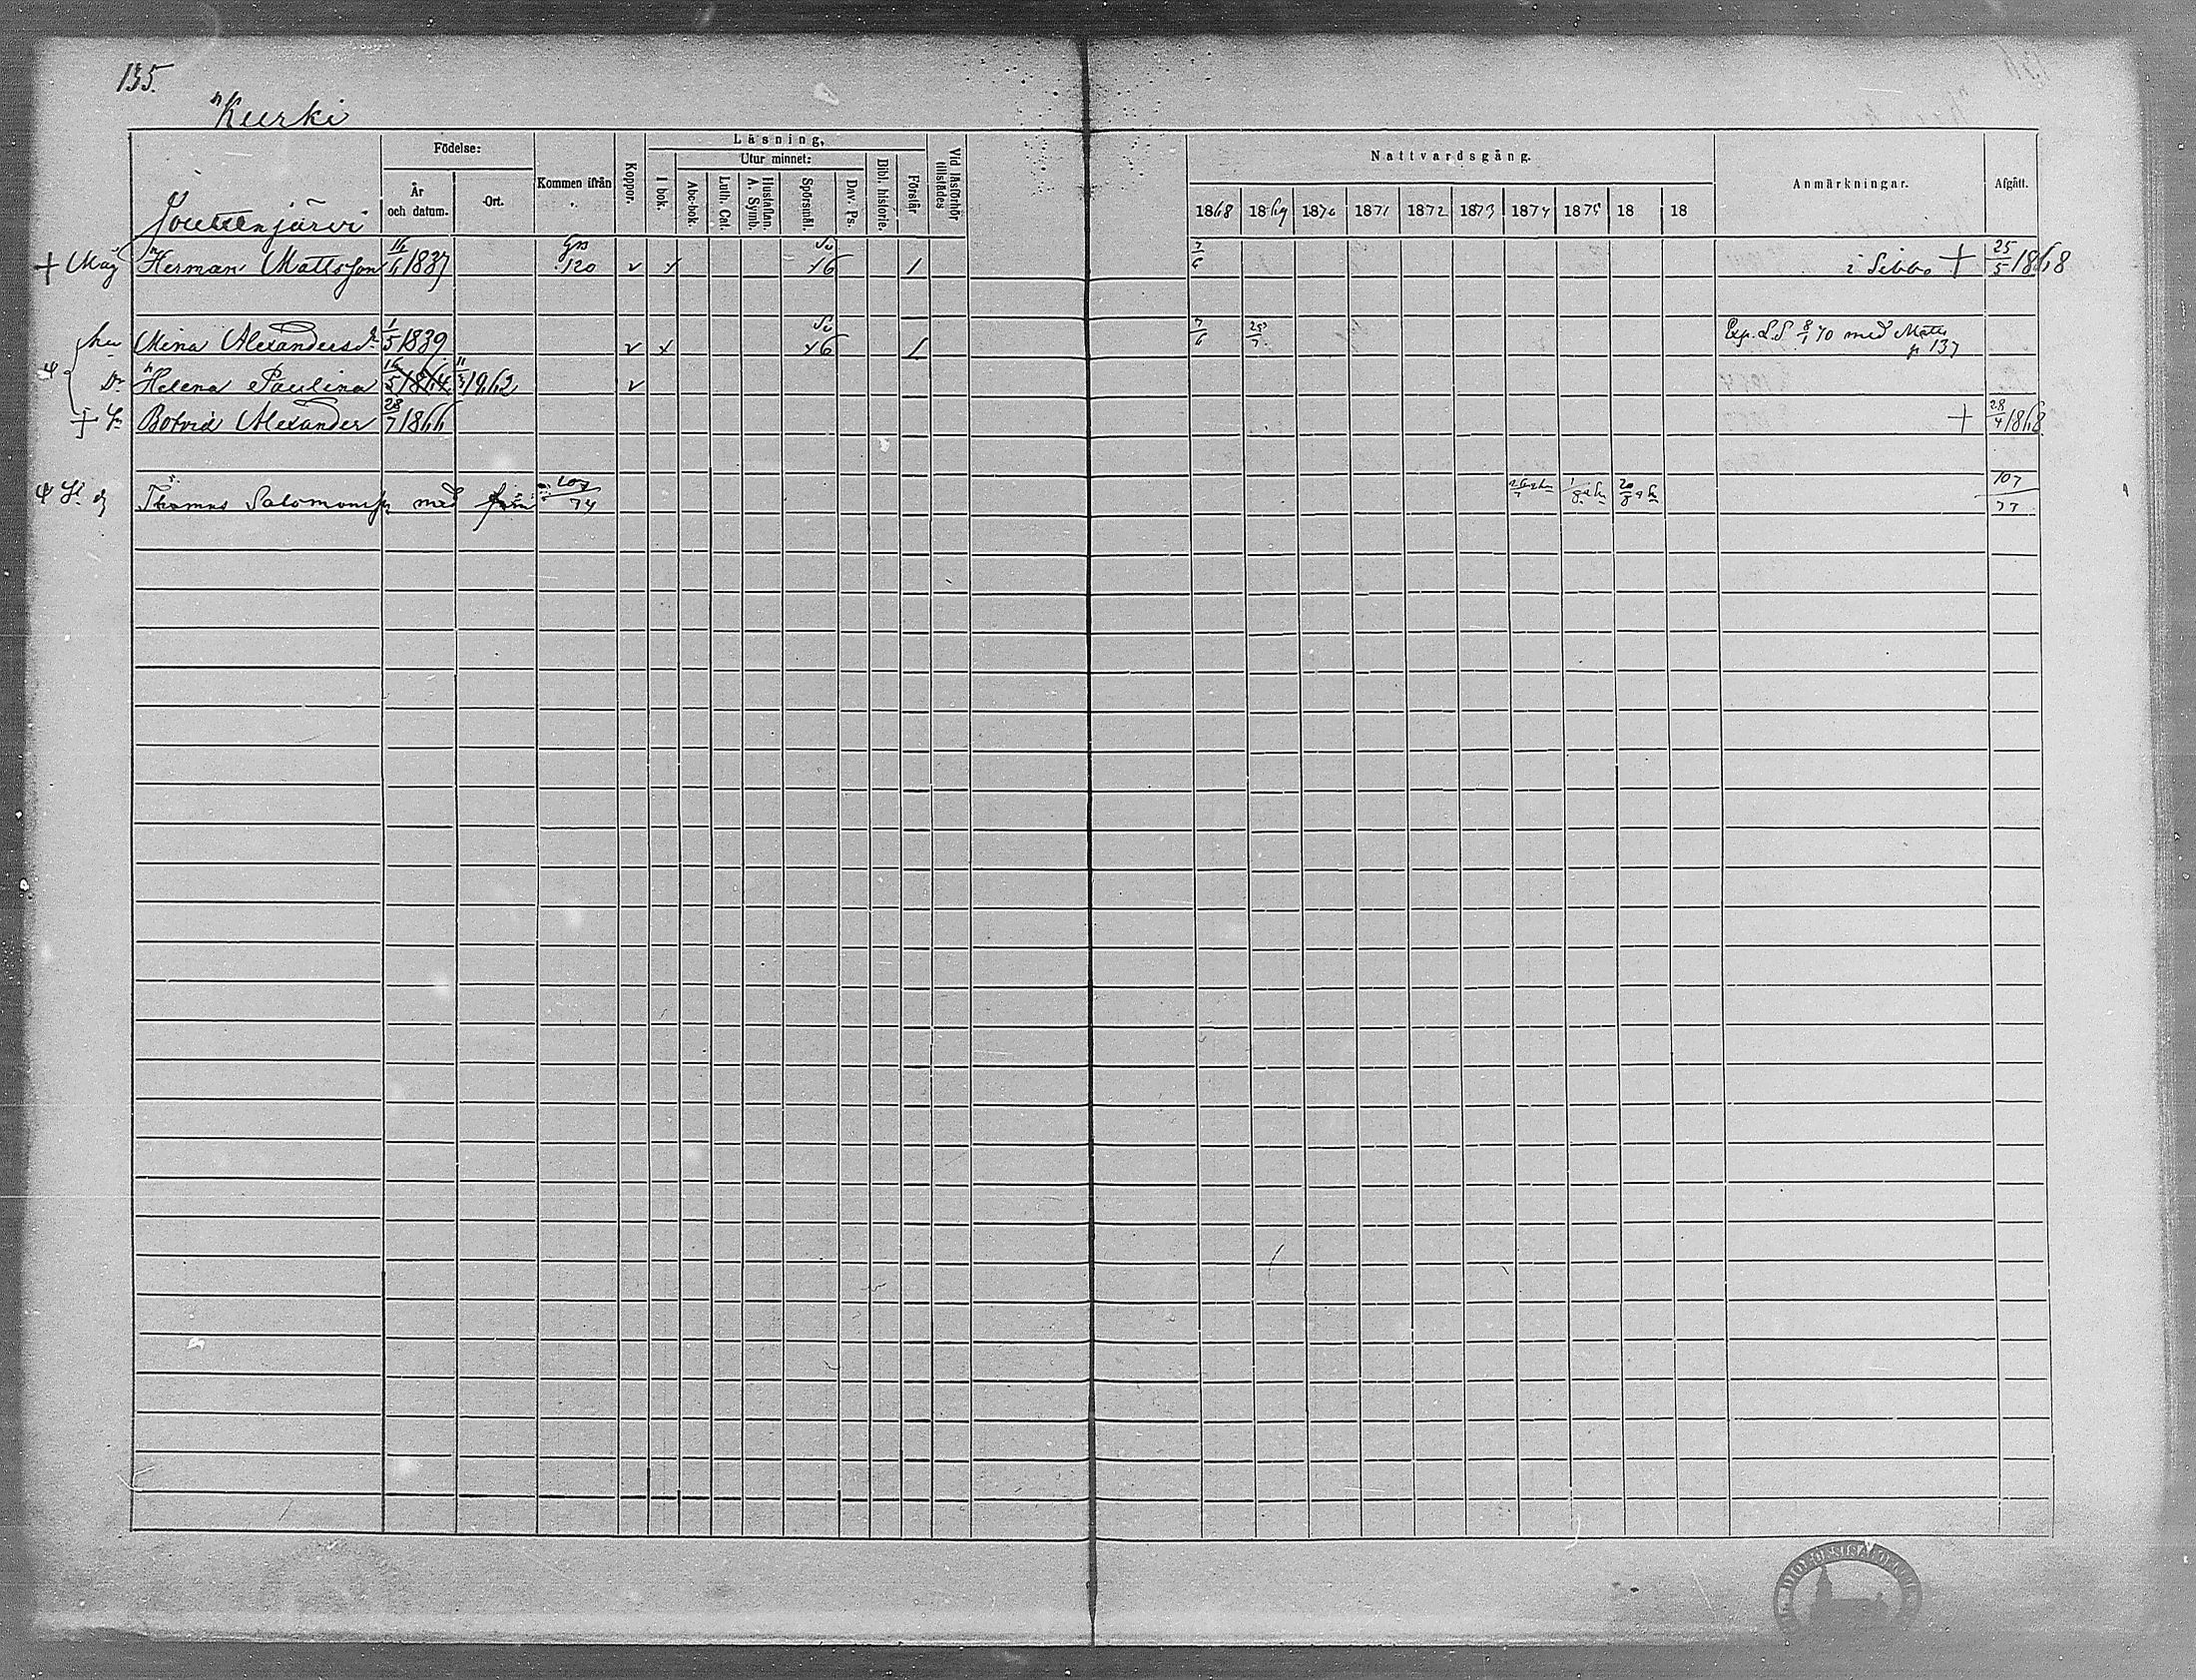 135.
Kurki
Joutsenjärvi
Födelse:
År och datum.
Ort.
Kommen ifrån
Koppor.
Läsning,
I bok.
Utur minnet:
Abc-bok.
Luth. Cat.
Hustaflan. A. Symb.
Spörsmål.
Dav. Ps.
Bibl. historie.
Förstår
Vid läsförhör tillstädes
Nattvardsgång.
1868 1869 1870 1871 1872 1873 1874 1875 18 18
Anmärkningar.
Afgått.
+ Mag Herman Mattsson 16/6 1837 120 v x x6 / 7/6 i Sibbo + 25/5 1868
hu Mina Alexandersdr 1/5 1839 v x x6 7/6 25/7 Exp. L.S 8/1 70 med Matts p 137
Dr Helena Paulina 16/5 1864 11/3 1862 v
+ Sn Botvid Alexander 28/7 1866 + 28/4 1868
Thomas Salomonss med fam 107/74 107/77